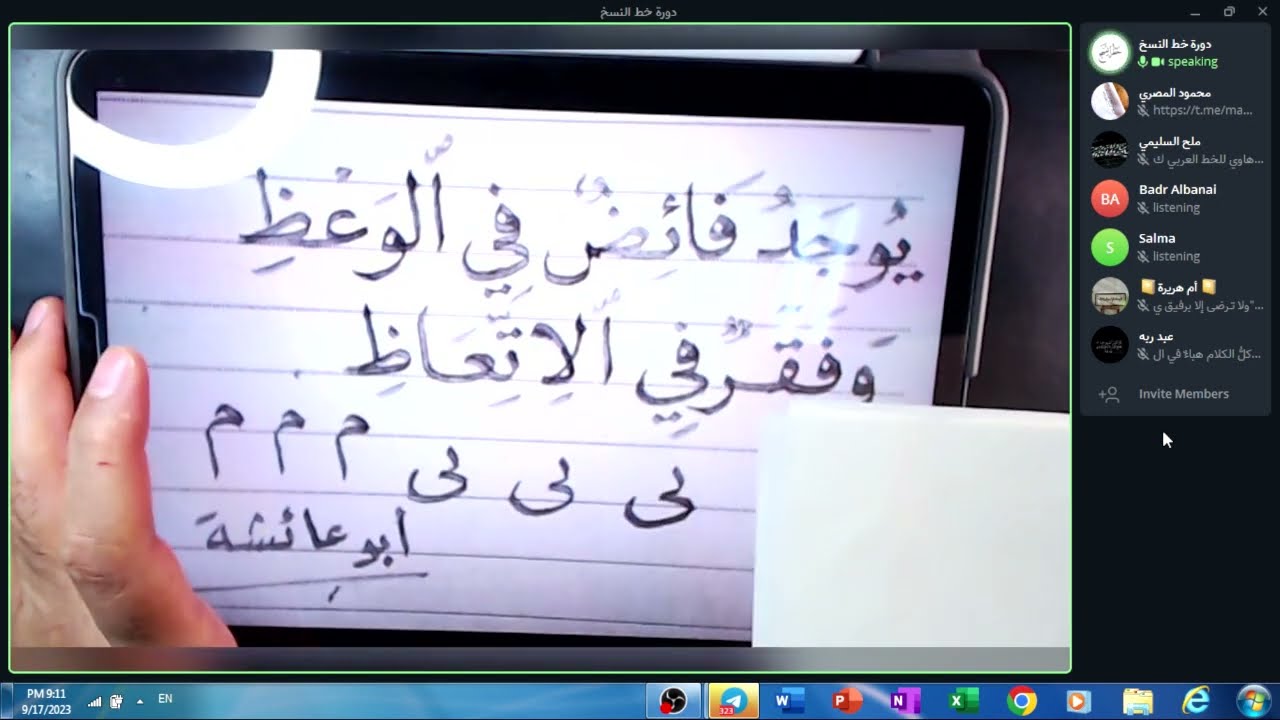 دورة خط النسخ
يُوجَدُ فَائِضٌ فِي ٱلْوَعْظِ
وَفَقْرٌ فِي ٱلِاتِّعَاظِ .
لى لى لى م م م
أبو عائشة
دورة خط النسخ
speaking
محمود المصري
https://t.me/ma...
ملح السليمي
هاوي للخط العربي ك...
BA
Badr Albanai
listening
S
Salma
listening
أم هريرة
"ولا ترضى إلا برفيق ي...
عبد ربه
كلُّ الكلام هباءٌ في ال...
Invite Members
PM 9:11
9/17/2023
EN
323